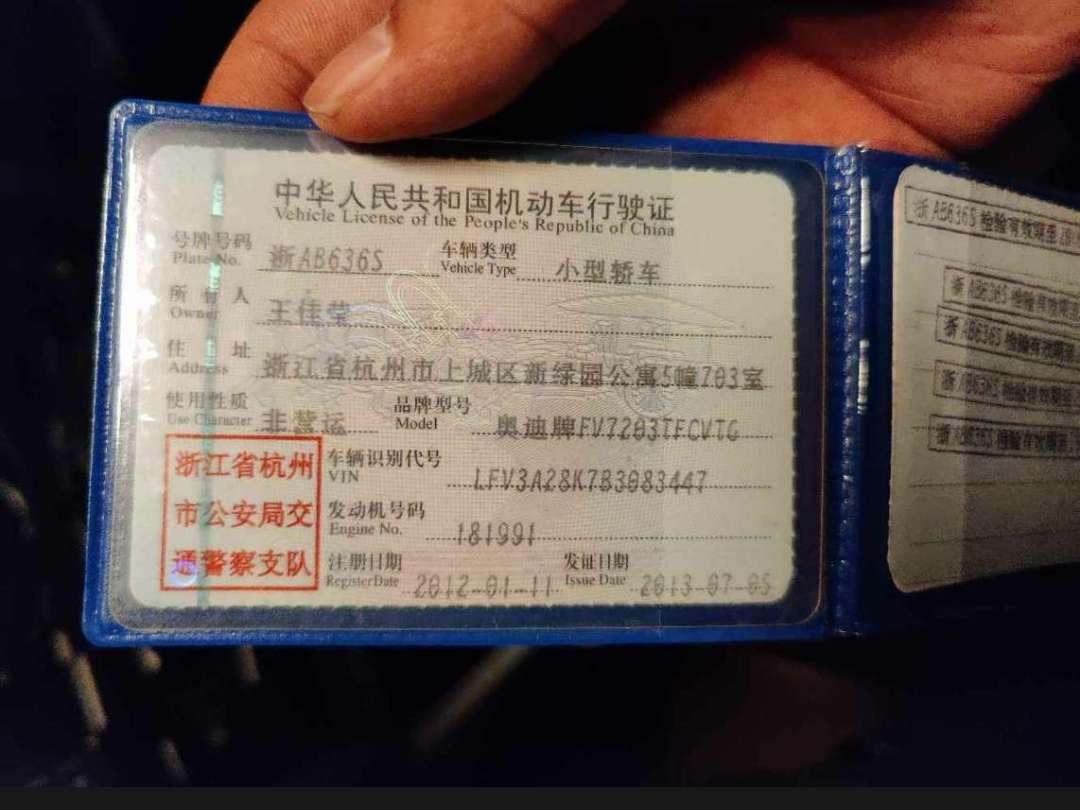 中华人民共和国机动车行驶证
Vehicle License of the People's Republic of China
号牌号码 浙AB636S 车辆类型 小型轿车
Plate No. Vehicle Type
所有人 王佳莹
Owner
住址 浙江省杭州市上城区新绿园公寓5幢703室
Address
使用性质 非营运 品牌型号 奥迪牌FV7203TFCVTG
Use Character Model
浙江省杭州
市公安局交
通警察支队
车辆识别代号 LFV3A28K7B3083447
VIN
发动机号码 181991
Engine No.
注册日期 2012-01-11 发证日期 2013-07-05
Register Date Issue Date
浙AB636S 检验有效期至
浙AB636S 检验有效期至
浙AB636S 检验有效期至
浙AB636S 检验有效期
浙AB636S 检验有效期